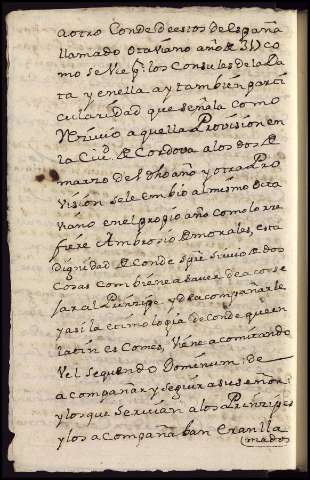 a otro Conde de estos de España
llamado Otaviano año de 317 co
mo se Vie los Consulas de la Da
ta y en ella ay tambien parti
cularidad que señala como
Recivio aquella Provision en
la Ciud de Cordova a los dos de
marzo del dho año y otra Pro
vision se le embio al mismo Octa
viano en el propio año como lo rre
fiere Ambrosio de morales, esta
Dignidad de Conde Sirvio de dos
Cosas Combiene a saver de a conse
jar al Principe y de acompañarle
y asi la etimologia de Conde que en
latin es Comes, Viene a comitando
Vel Sequendo Dominum de
acompañar y seguir a su señor
y los que Servian a los Principes
y los acompañaban eran lla
mados